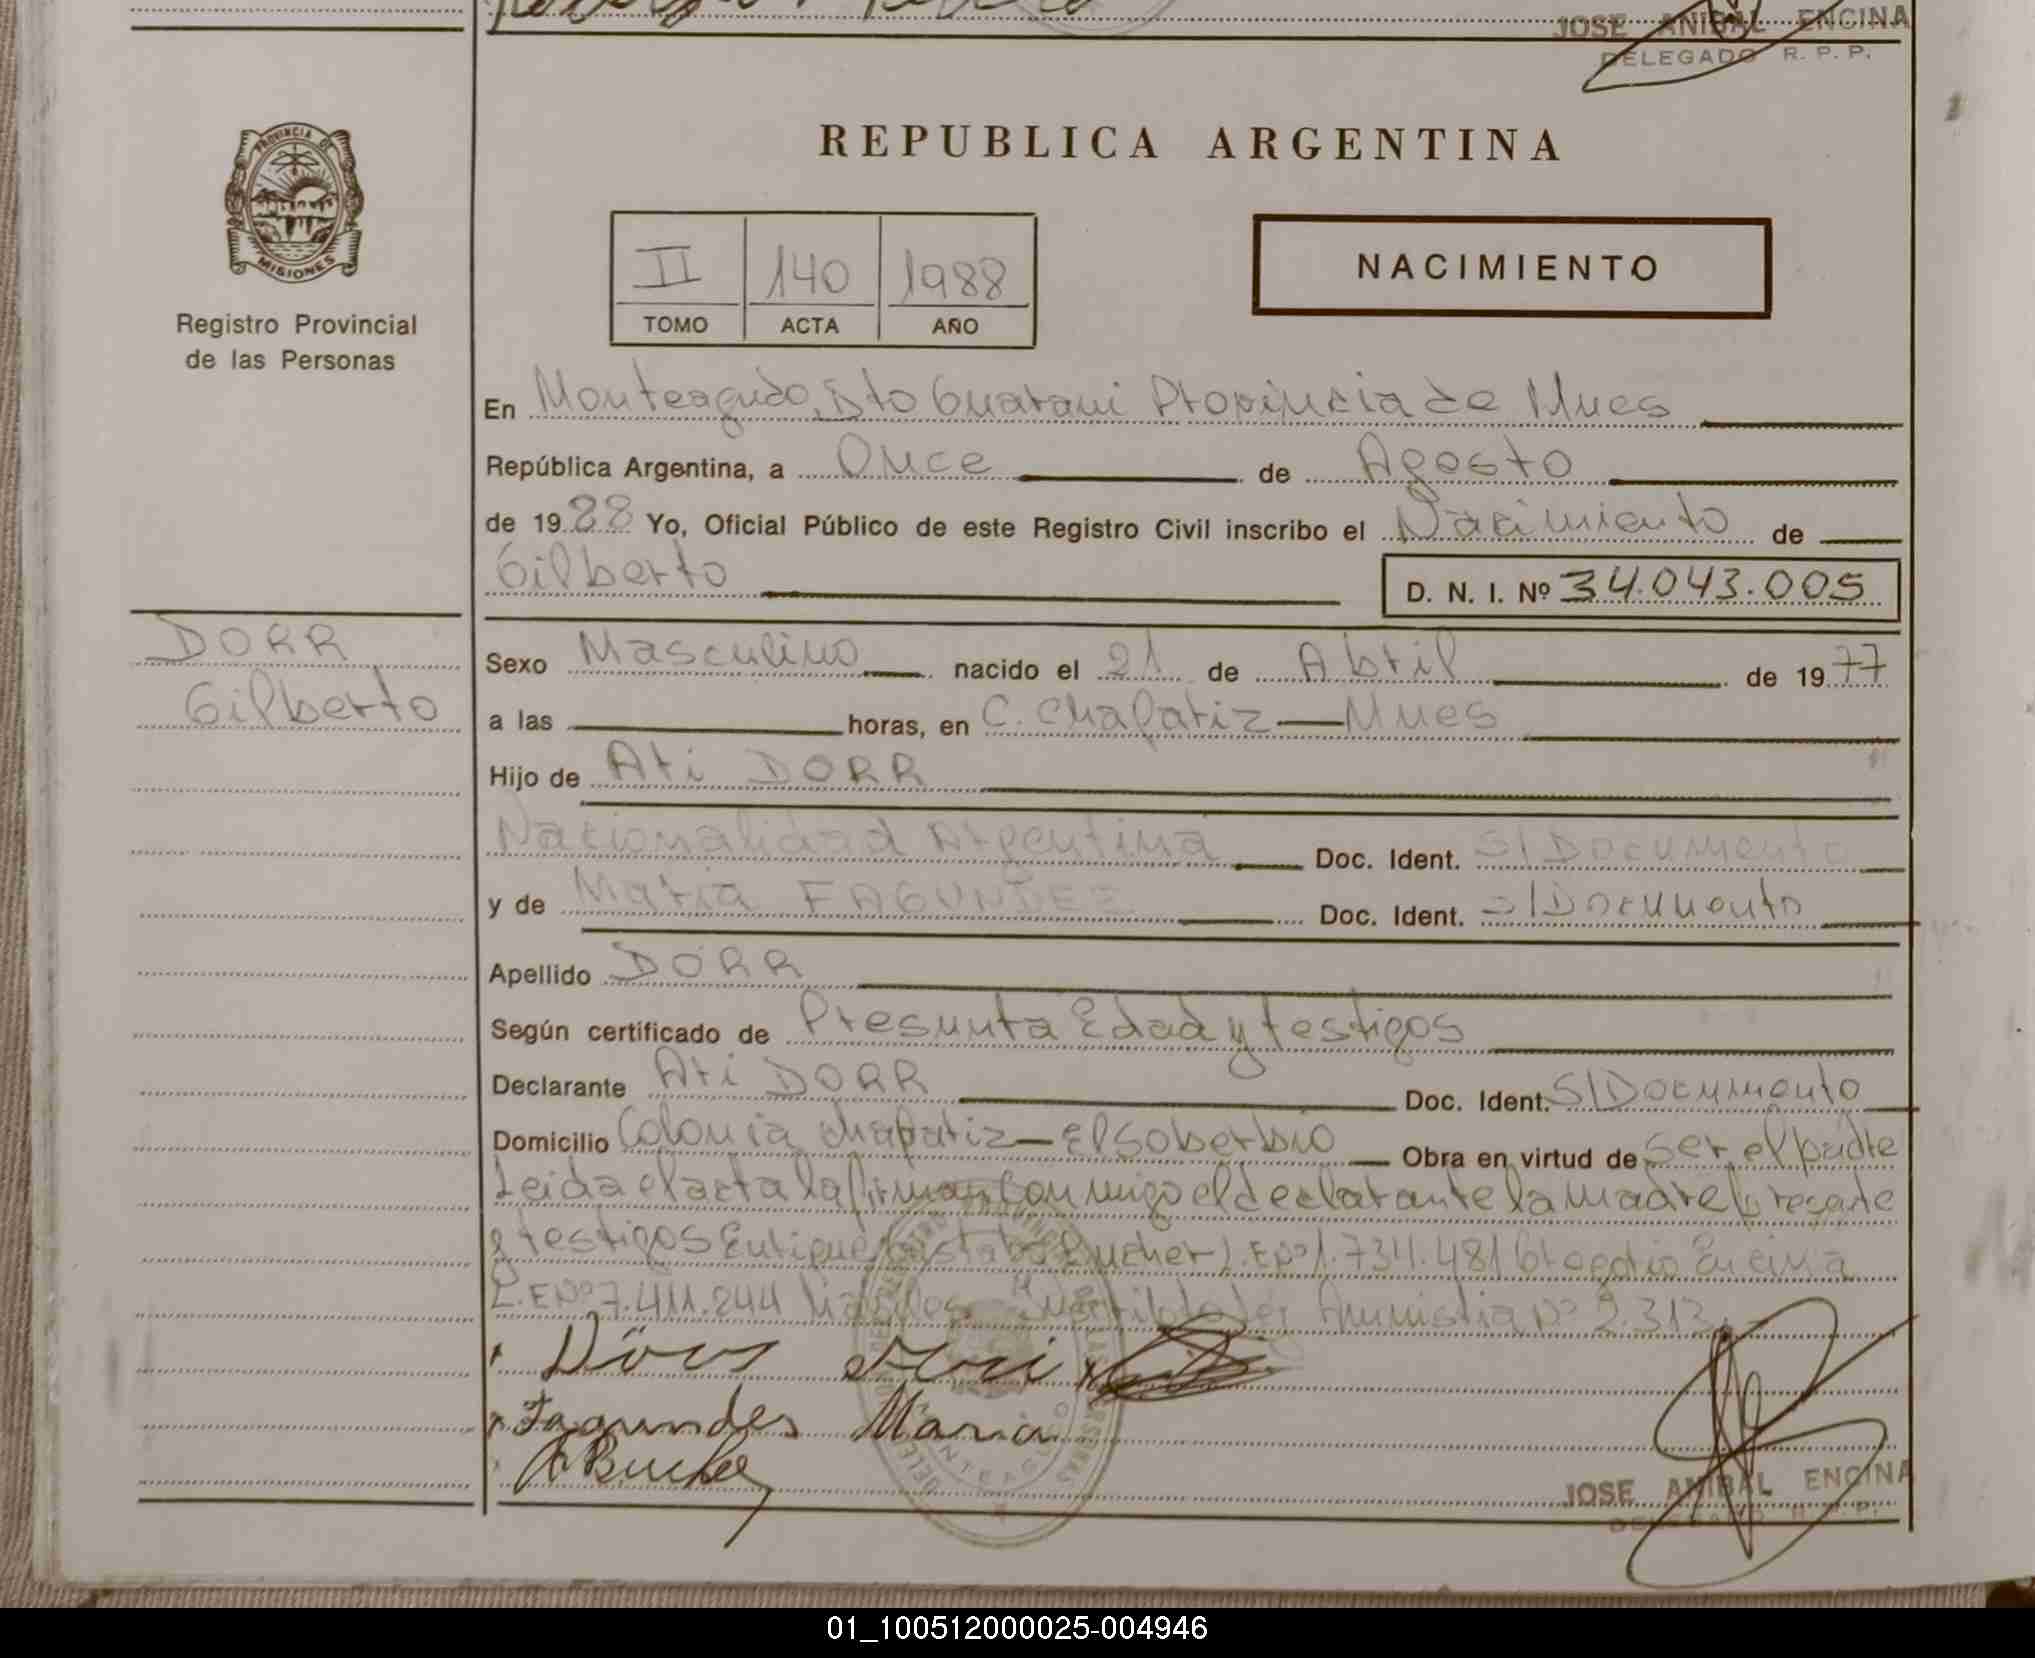 JOSE ANIBAL ENCINA
DELEGADO R. P. P.
PROVINCIA DE
MISIONES
Registro Provincial
de las Personas
REPUBLICA ARGENTINA
II 140 1988
TOMO ACTA AÑO
NACIMIENTO
En Monteagudo, Dto Guarani Provincia de Mnes
República Argentina, a Once de Agosto
de 1988 Yo, Oficial Público de este Registro Civil inscribo el Nacimiento de
Gilberto
D. N. I. Nº 34.043.005
DORR
Gilberto
Sexo Masculino nacido el 21 de Abril de 1977
a las horas, en C. Chafariz — Mnes
Hijo de Ari DORR
Nacionalidad Argentina Doc. Ident. S/Documento
y de Maria FAGUNDEZ Doc. Ident. S/Documento
Apellido DORR
Según certificado de Presunta Edad y testigos
Declarante Ari DORR Doc. Ident. S/Documento
Domicilio Colonia chafariz — El Soberbio Obra en virtud de ser el padre
Leida el acta la firman conmigo el declarante la madre presente
y testigos Enrique Bucher L.E Nº 1.734.481 Encina
L.E Nº 7.411.244 Amnistia Nº 2.313
Dörr Ari
Fagundes Maria
Bucher
JOSE ANIBAL ENCINA
DELEGADO R. P. P.
01_100512000025-004946